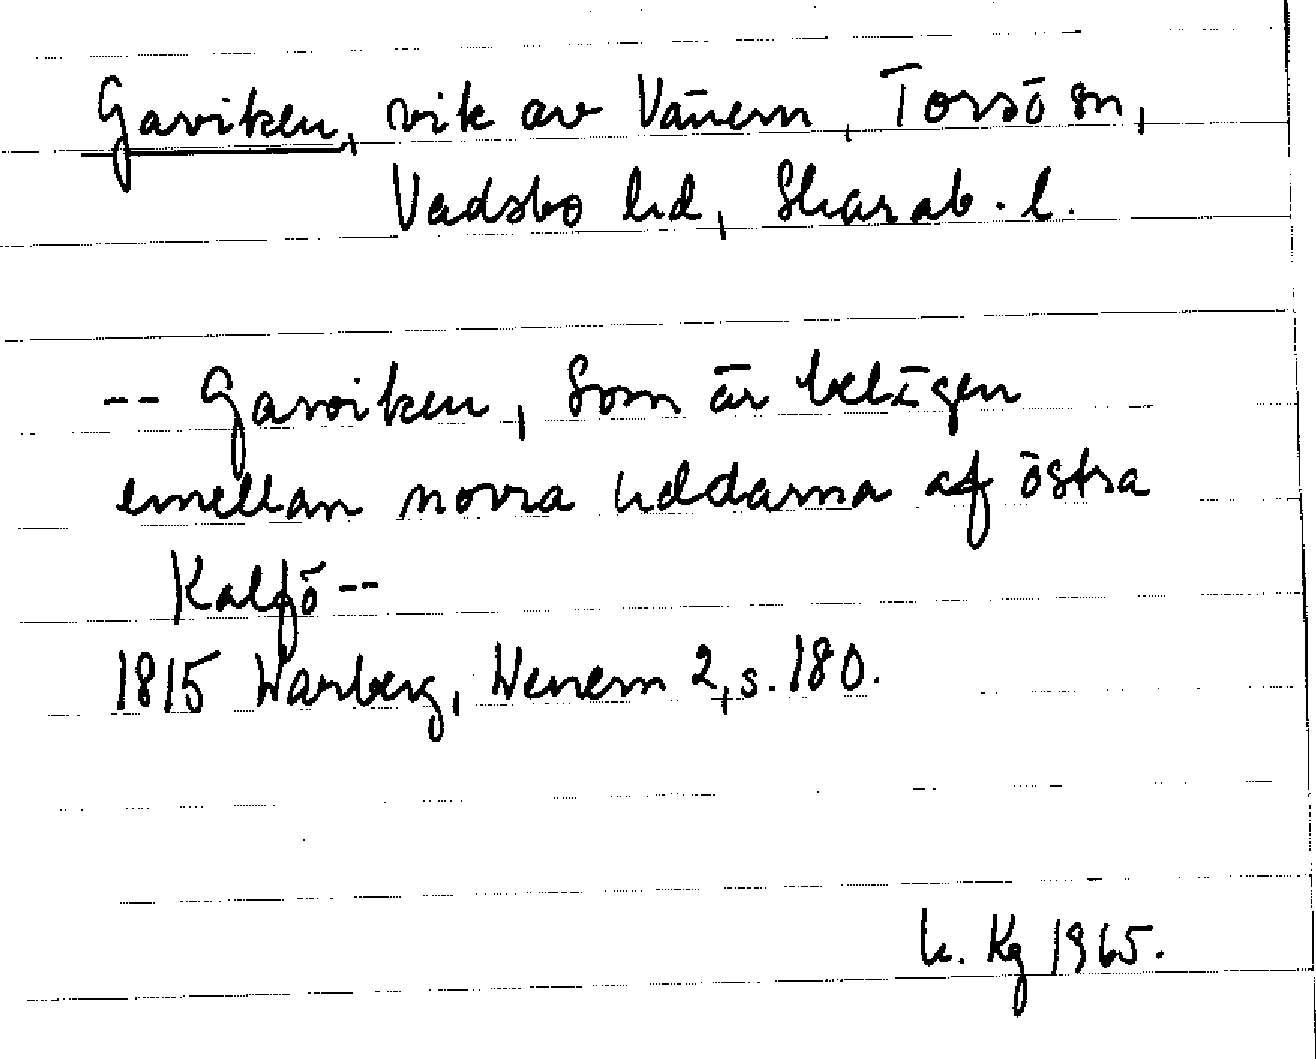 Gaviken, vik av Vänern, Torsö sn,
Vadsbo hd, Skarab. l.
-- Gaviken, som är belägen
emellan norra uddarna af östra
Kalfö --
1815 Warberg, Wenern 2, s. 180.
k. Kg 1965.